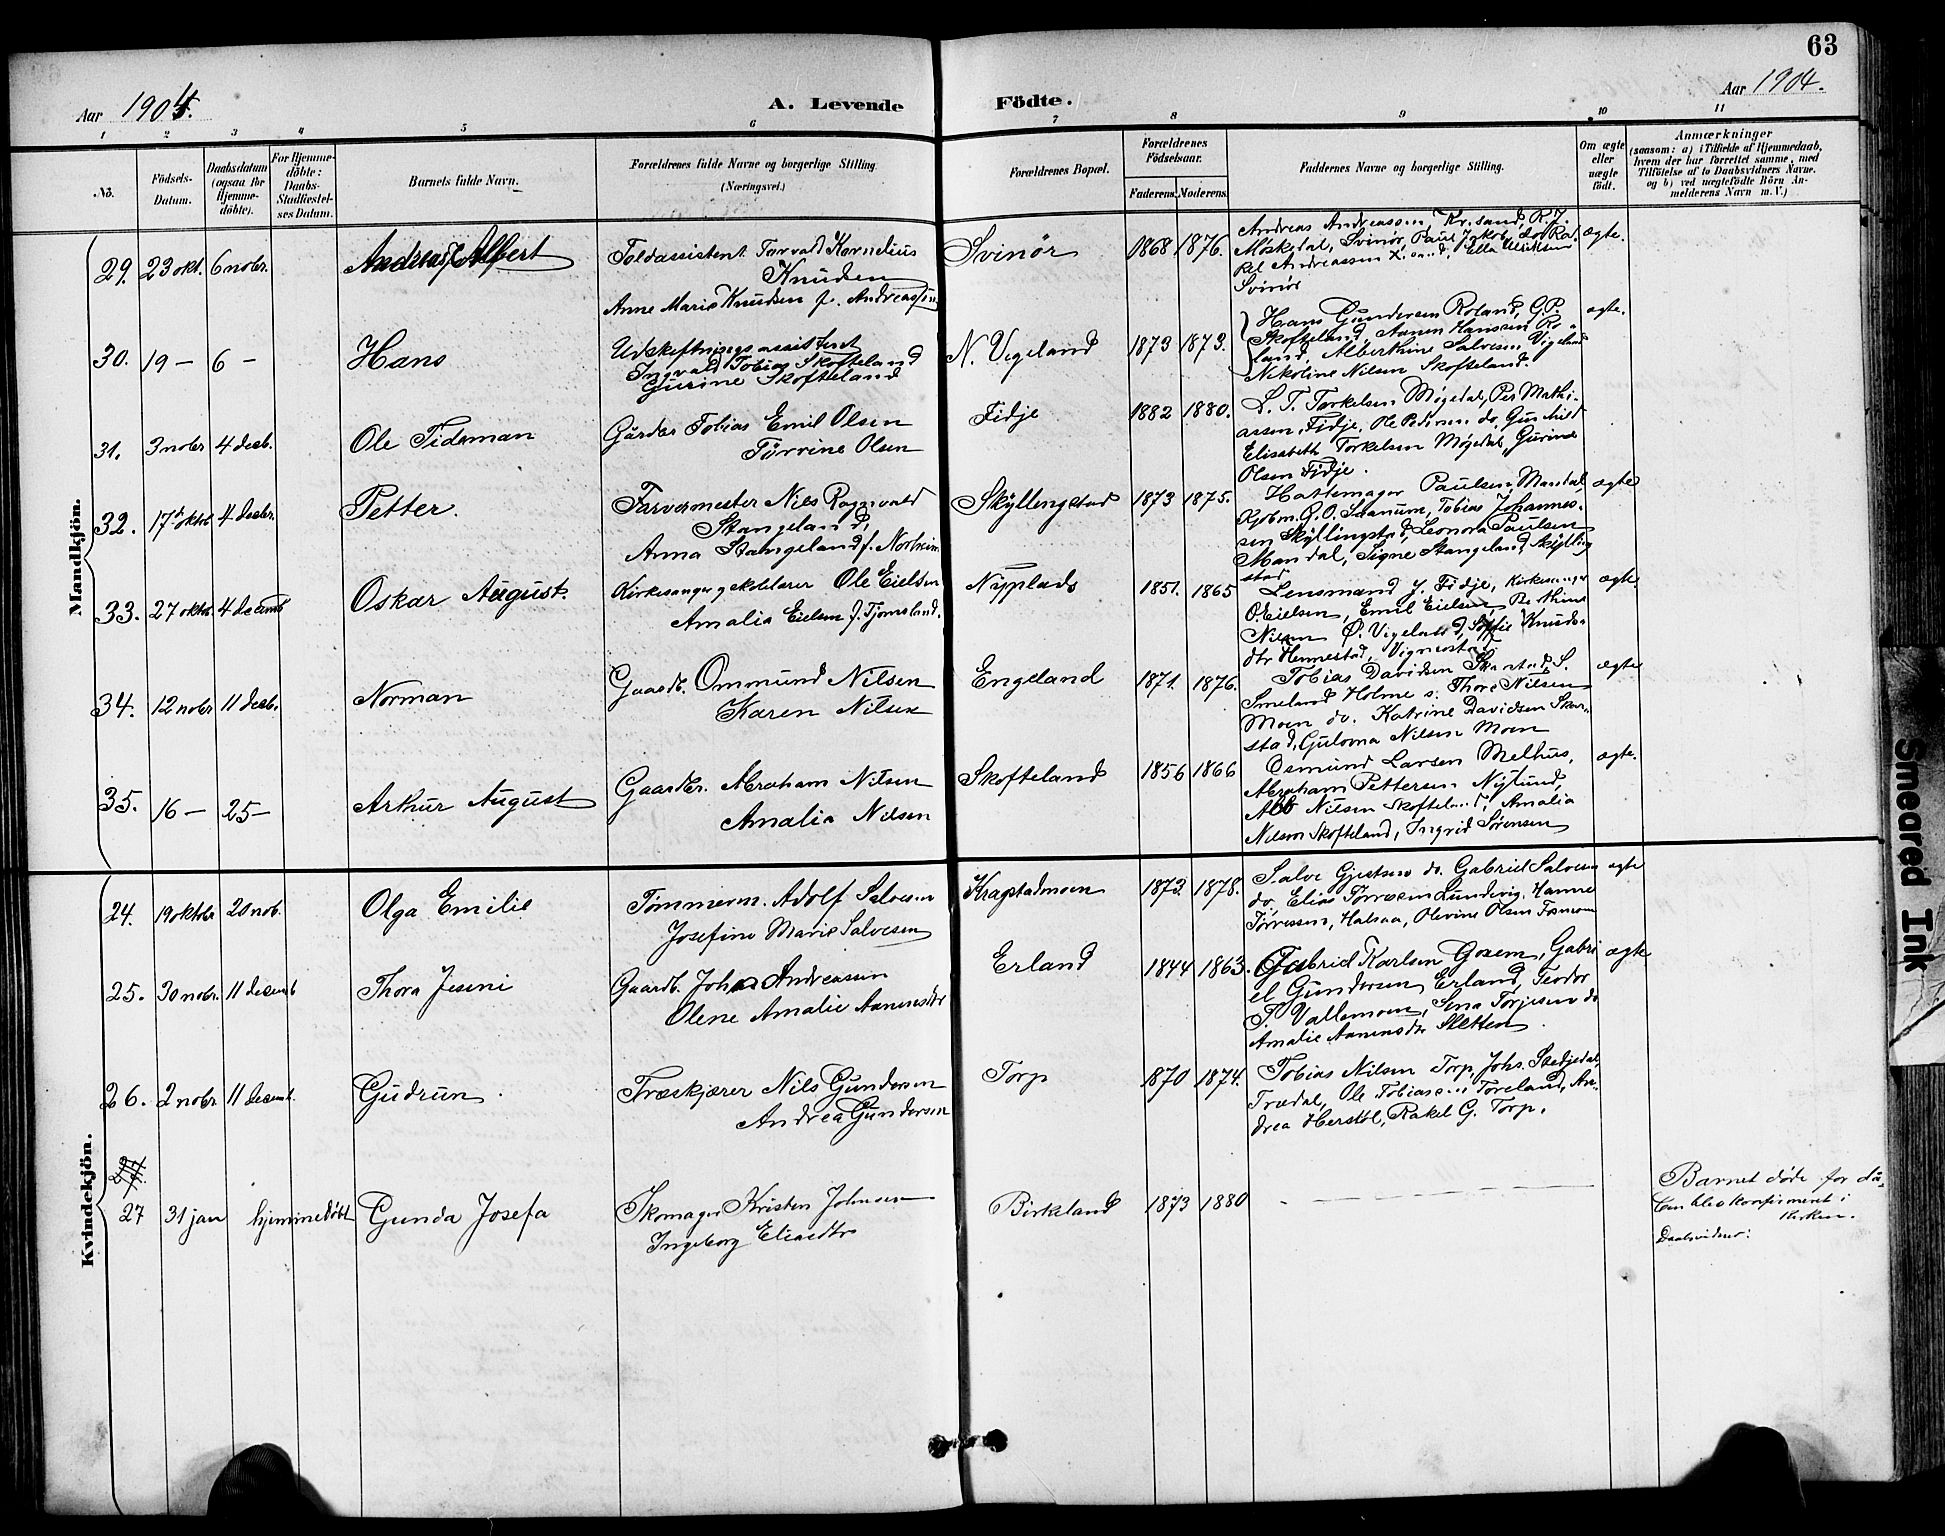 63
Aar 1904.
A. Levende Födte.
Aar 1904.
1 2 3 4 5 6 7 8 9 10 11
No.
Födsels-Datum.
Daabsdatum (ogsaa for Hjemme-döbte).
For Hjemme-döbte: Daabs-Stadfæstel-ses Datum.
Barnets fulde Navn.
Forældrenes fulde Navne og borgerlige Stilling. (Næringsvei.)
Forældrenes Bopæl.
Forældrenes Födselsaar.
Faderens. Moderens.
Faddernes Navne og borgerlige Stilling.
Om ægte eller uægte födt.
Anmærkninger
(saasom: a) i Tilfælde af Hjemmedaab, hvem der har forrettet samme, med Tilföielse af to Daabsvidners Navne, og b) ved uægtefödte Börn An-melderens Navn m. V.)
Mandkjön.
29. 23 okt. 6 nobr. Andreas Albert
Toldassistent Torvald Kornelius
Knudsen
Anne Marie Knudsen f. Andreassen
Svinør 1868 1876.
Andreas Andreassen Kr.sand, R. J.
Møskedal, Svinør, Paul Jakobs. do Ra-
kel Andreassen K.sand, Ella Ulriksen
Svinør
ægte.
30. 19 — 6 — Hans
Udskiftningsassistent
Ingvald Tobias Skofteland
Gurine Skofteland
N. Vigeland 1873 1873.
Hans Gundersen Roland, G. P.
Skofteland, Aanen Hanssen Ro-
land, Alberthine Salvesen Vigeland
Nikoline Nilsen Skofteland.
ægte.
31. 3 nobr 4 desb. Ole Tideman
Gårdbr Tobias Emil Olsen
Tørrine Olsen
Fidje 1882 1880.
L. T. Torkelsen Møgedal, Per Mathi-
assen Fidje, Ole Pedersen do, Gunhild
Elisabeth Torkelsen Møgedal, Gurine
Olsen Fidje.
32. 17de oktb 4 desbr. Petter.
Farvermester Nils Rognvald
Stangeland,
Anna Stangeland f. Norheim
Skyllingstad 1873 1875.
Hattemager Paulsen Mandal,
Kjøbm. G. O. Saanum, Tobias Johannes-
sen Skyllingstad, Leonora Paulsen
Mandal, Signe Stangeland Skylling
stad
ægte
33. 27 oktb 4 decemb Oskar August.
Kirkesanger g skolelærer Ole Eielsen
Amalia Eielsen f. Tjomsland.
Nyplads 1851. 1865
Lensmand J. Fidje, Kirkesanger
O. Eielsen, Emil Eielsen, Berthine
Nilsen Ø. Vigeland, Sofie Knuds-
dtr Hennestad, Vigmostad
ægte
34. 12 nobr 11 desb. Norman
Gaardb. Ommund Nilsen
Karen Nilsen
Engeland 1871. 1876.
Tobias Davidsen Skarstad, S.
Smeland Holme s. Thore Nilsen
Moen do. Katrine Davidsen Skar-
stad, Gulovna Nilsen Moen
ægte
35. 16 — 25 — Arthur August
Gaardbr. Abraham Nilsen
Amalia Nilsen
Skofteland 1856 1866
Osmund Larsen Melhus,
Abraham Pettersen Nylund,
Nilsen Skofteland, Amalia
Nilsen Skofteland, Ingrid Sørensen
ægte.
Kvindekjön.
24. 19 oktbr 20 nob. Olga Emilie
Tømmerm. Adolf Salvesen
Josefine Marie Salvesen
Kragstadmoen 1873 1878.
Salve Gjertsen do. Gabriel Salvesen
do, Elias Tørresen Lundevig, Hanne
Tørressen, Halsaa, Olevine Olsen
ægte
25. 30 nobr. 11 decemb Thora Jesine
Gaardb. Johan Andreassen
Olene Amalie Aanensdtr
Erland 1844 1863.
Gabriel Karlsen Goxem, Gabri
el Gundersen Erland, Teodor
T. Vallemoen, Sina Torjesen do
Amalie Aanensdtr Sletten.
ægte
26. 2 nobr 11 decemb. Gudrun.
Træskjærer Nils Gundersen
Andrea Gundersen
Torp 1870 1874.
Tobias Nilsen Torp, Johs. Stedjedal,
Trædal, Ole Tobiasen Foreland, An-
drea Herstøl, Rakel G. Torp.
27.
27 31 jan hjemmedøbt Gunda Josefa
Skomager Kristen Johnsen
Ingeborg Eliasdtr
Birkeland 1873 1880
Barnet døde før då-
ben ble konfirmeret i
kirken.
Daabsvidner:
Smeared Ink